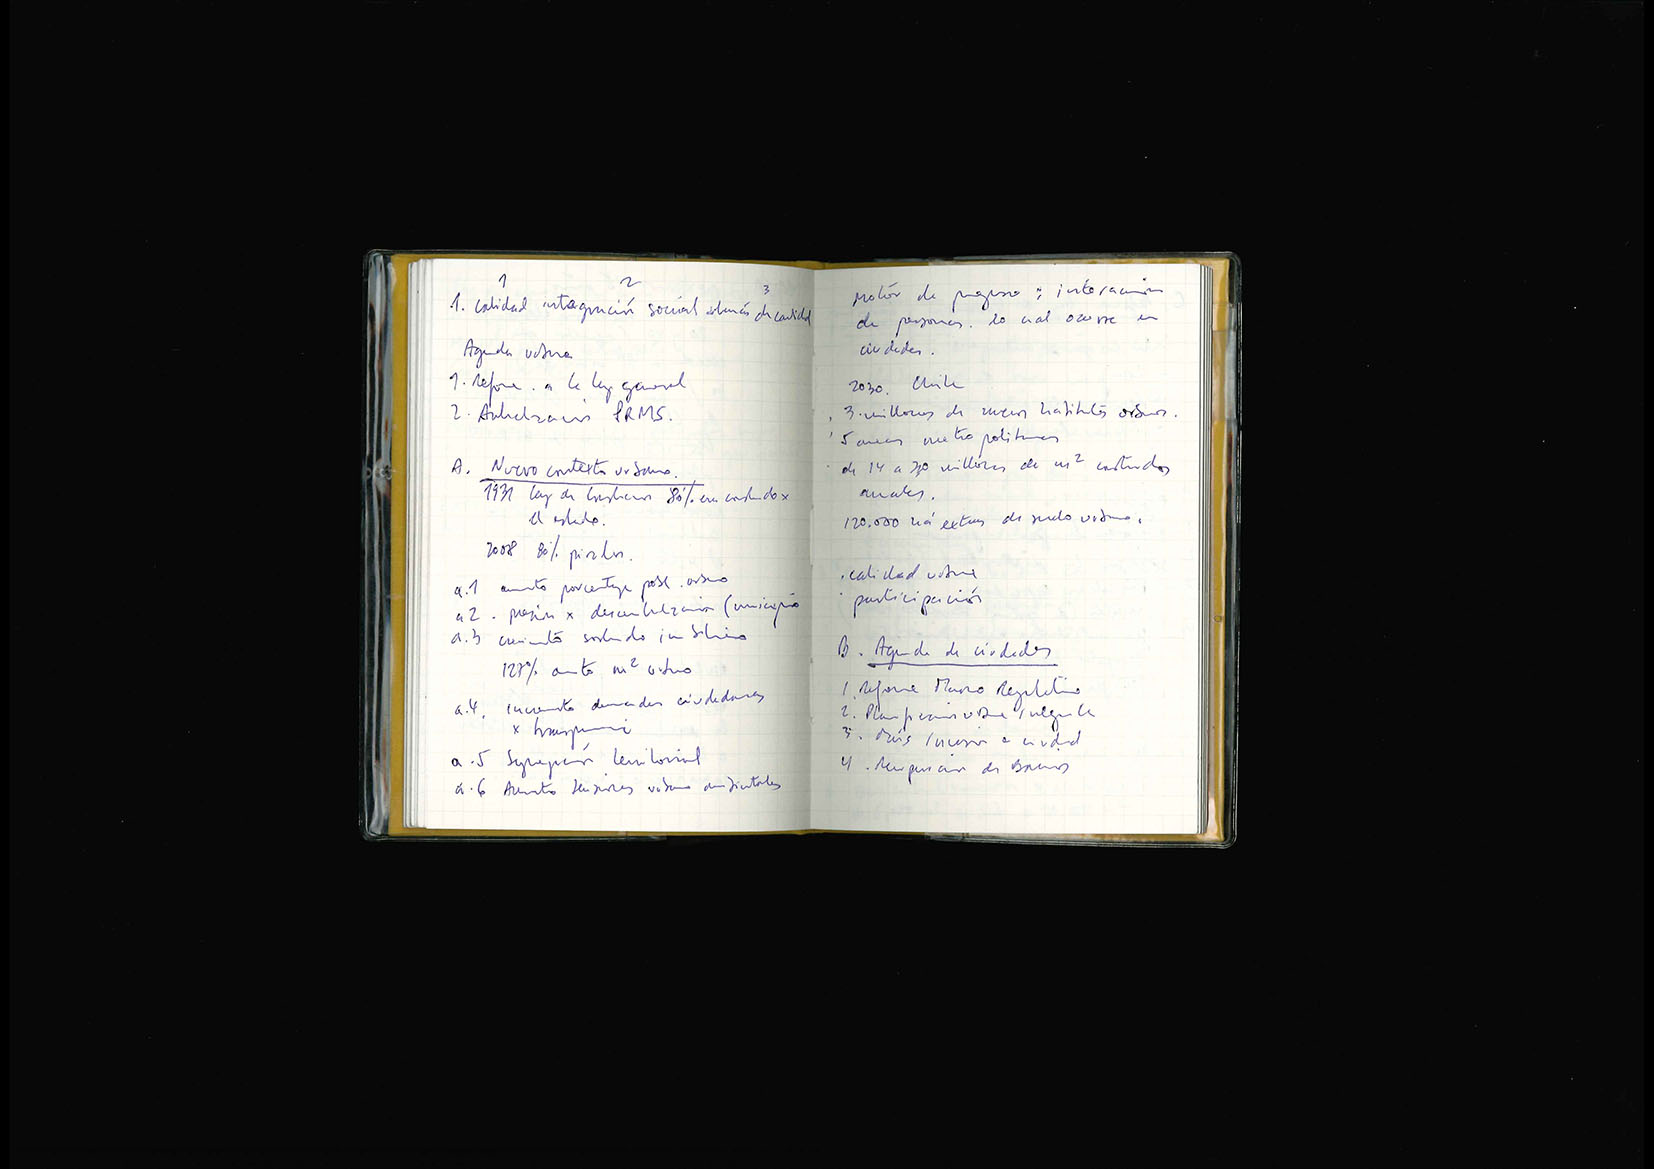 1 2 3
1. calidad integración social además de cantidad
Agenda urbana
1. Reforma a la ley general
2. PRMS.
A. Nuevo contexto urbano.
1931 ley de 80% era construido x
el estado.
2008 80% privados.
a.1 aumento porcentaje pobl. urbano
a2. presión x descentralización (municipio
a.3 crecimiento sostenido inmobiliario
127% aumento m² urbano
a.4. incremento demandas ciudadanas
x transparencia
a.5 Segregación territorial
a.6 Aumento tensiones urbano ambientales
Motor de progreso : interacción
de personas. lo cual ocurre en
ciudades.
2030. Chile
3. millones de nuevos habitantes urbanos.
5 areas metropolitanas
de 14 a 20 millones de m² construidos
anuales.
120.000 há extras de suelo urbano.
. calidad urbana
. participación
B. Agenda de ciudades
1. Reforma Marco Regulatorio
2. Planificación urbana integrada
3. inversión a ciudad
4. Recuperación de Barrios